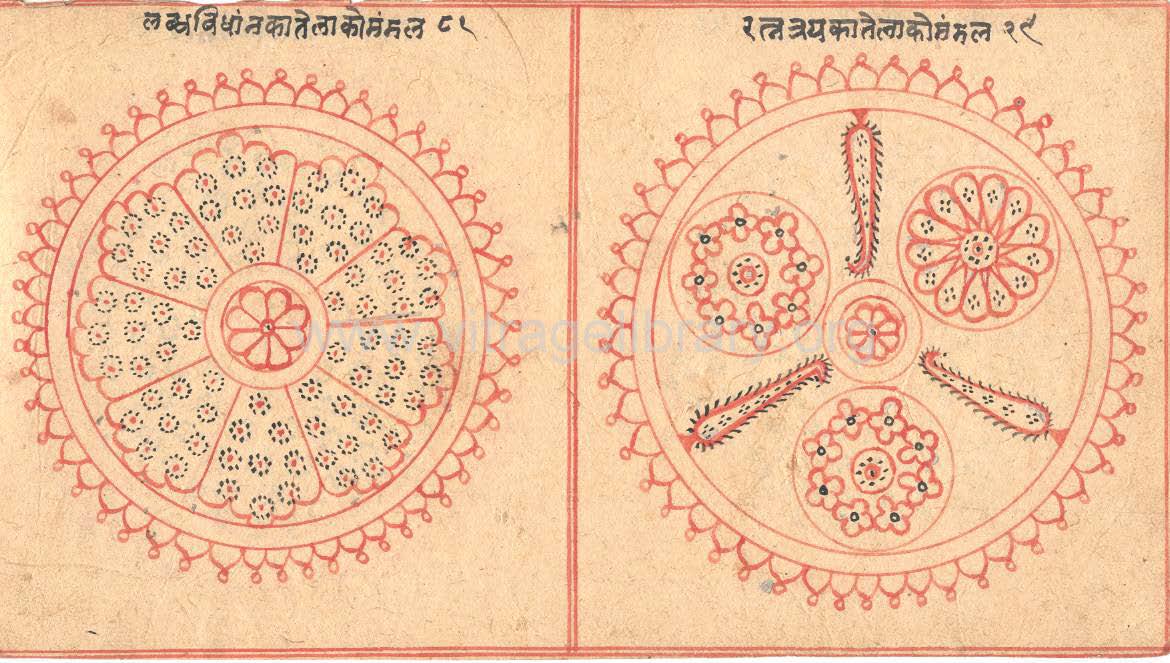 लब्धविधांनकातेलाकोमंमल ८१
रत्नत्रयकातेलाकोमंमल २९
www.vitragelibrary.org